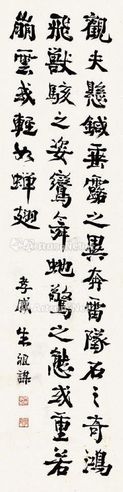 觀夫懸鍼垂露之異奔雷隊石之奇鴻
飛獸駭之姿鸞舞虵驚之態或重若
崩雲或輕如蟬翅
孝臧朱祖謀